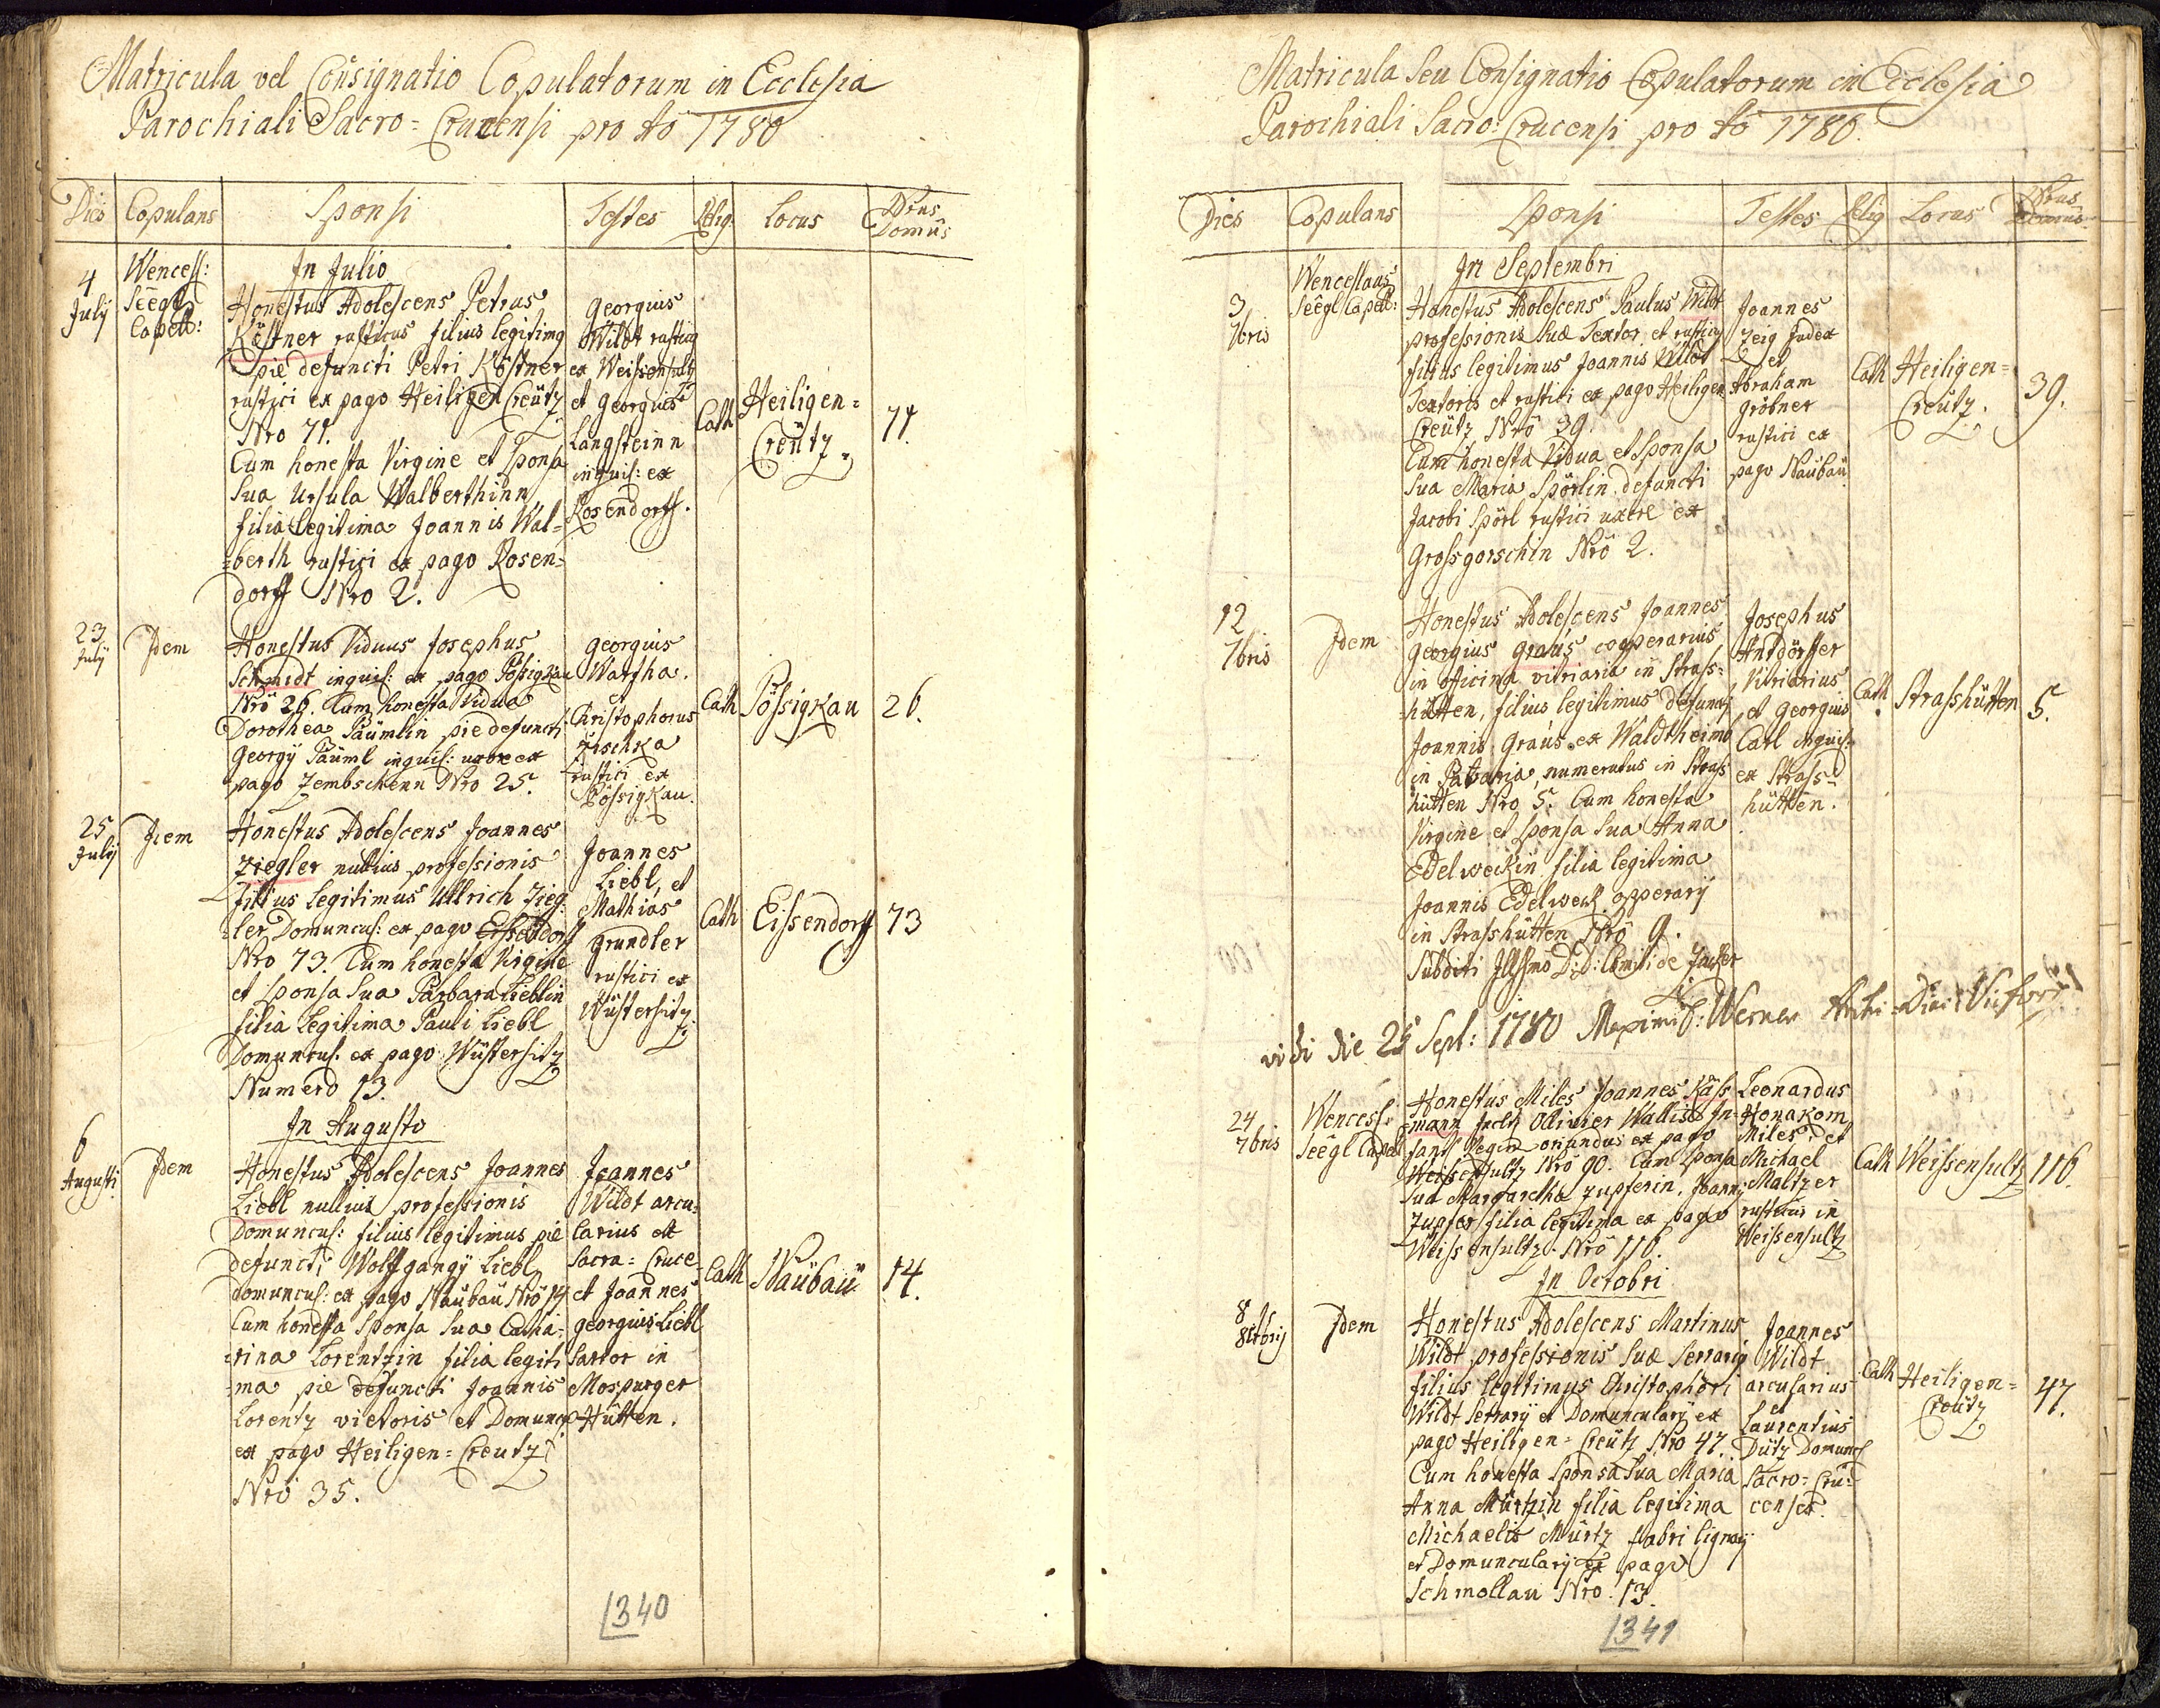 Matricula vel Consignatio Copulatorum in Ecclesia
Parochiali Sacro = Crucensi pro Ao 1780
Dies Copulans Sponsi Testes Relig: Locus Nrus Domus
In Julio
4 July
Wencesl:
Seegl
Capell:
Honestus Adolescens Petrus
Köstner rusticus filius legitimq
pie defuncti Petri Köstner
rustici ex pago Heiligen Creütz
Nro 71.
Cum honesta Virgine et Sponsa
Sua Ursula Walberthinn
filia Legitima Joannis Wal=
=berth rustici ex pago Rosen=
dorff Nro 2.
Georgius
Wildt rusticq
ex Weissensultz
et Georgius
Langsteinn
inquil: ex
Rosendorff.
Cath
Heiligen =
Creütz.
71.
23
July
Idem
Honestus Viduus Josephus
Schmidt inquil: ex pago Pössigkau
Nrö 26. Cum honesta Vidua
Dorothea Päumlin pie defuncti
Georgÿ Päuml inquil: uxore ex
pago Zembschenn Nro 25.
Georgius
Watzha.
et
Christophorus
Zischka
rustici ex
Pössigkau.
Cath
Pössigkau
26.
25
July
Idem
Honestus Adolescens Joannes
Ziegler nullius professionis
filius legitimus Ullrich Zieg=
=ler Domuncul: ex pago Eissendorf
Nro 73. Cum honesta Virgine
et Sponsa Sua Barbara Lieblin
filia Legitima Pauli Liebl
Domuncul. ex pago Wüstersitz
Numero 13.
Joannes
Liebl, et
Mathias
Grundler
rustici ex
Wüstersitz.
Cath
Eissendorff
73
In Augusto
6
Augusti
Idem
Honestus Adolescens Joannes
Liebl nullius professionis
Domuncul: filius legitimus pie
defuncti Wolffgangÿ Liebl
Domuncul: ex pago Naübaü Nrö 14
Cum honesta Sponsa Sua Catha=
=rina Lorentzin filia legiti
=ma pie defuncti Joannis
Lorentz vietoris et Domuncul
ex pago Heiligen = Creutz
Nrö 35.
Joannes
Wildt arcu=
larius ex
Sacra = Cruce
et Joannes
Georgius Liebl
Sartor in
Mospurger
Hütten.
Cath
Naübaü
14.
1340
Matricula Seu Consignatio Copulatorum in Ecclesia
Parochiali Sacro: Crucensi pro Ao 1780.
Dies Copulans Sponsi Testes Relig Locus Nrus Domus
In Septembri
3
7bris
Wenceslaus
Seêgl Capell:
Honestus Adolescens Paulus Wildt
professionis Suæ Textor, et rusticq
filius legitimus Joannis Wildt
Textoris et rustici ex pago Heiligen
Creütz Nrö 39.
Cum honesta Vidua et Sponsa
Sua Maria Spörlin defuncti
Jacobi Spörl rustici uxore ex
Grossgorschin Nrö 2.
Joannes
Zeig Judex
et
Abraham
Gröbner
rustici ex
pago Naübaü
Cath
Heiligen =
Creütz.
39.
12
7bris
Idem
Honestus Adolescens Joannes
Georgius Graüs cooperarius
in officina vitriaria in Strass=
=hütten, filius legitimus defuncti
Joannis Graüs ex Waldtheim
in Bavaria, numeratus in Strass
hütten Nro 5. Cum honesta
Virgine et Sponsa Sua Anna
Edelweckin filia legitima
Joannis Edelweck opperarÿ
in Strasshütten Nrö 9.
Subditi Illssmo D: D: Comiti de
Josephus
Antdörffer
Vitriarius
et Georgius
Carl inquil:
ex Strass=
hütten.
Cath
Strasshütten
5.
vidi die 25 Sept: 1780 Maximil: Werner Archi-Diac:
24
7bris
Wencesl:
Seêgl Capell
Honestus Miles Joannes Käss
mann Inclÿ Ollivier Wallis In=
fant Regim oriundus ex pago
Weissensultz Nrö 90. Cum Sponsa
Sua Margaretha Zupferin, Joannis
Zupfer filia legitima ex pago
Weissensultz Nrö 116.
Leonardus
Honakom
Miles, et
Michael
Maltzer
rusticus in
Weissensultz
Cath
Weissensultz
116.
In Octobri
8
8tbris
Idem
Honestus Adolescens Martinus
Wildt professionis Suæ Serrariq
filius legitimus Christophori
Wildt Serrarÿ et Domuncularÿ ex
pago Heiligen = Creütz Nro 47.
Cum honesta Sponsa Sua Maria
Anna Mürtzin filia legitima
Michaelis Mürtz fabri lignarÿ
et Domuncularÿ ex pago
Schmollau Nro. 13.
Joannes
Wildt
arcularius
et
Laurentius
Dütz Domuncl
Sacro = Cru=
censes.
Cath
Heiligen =
Creütz
47.
1341